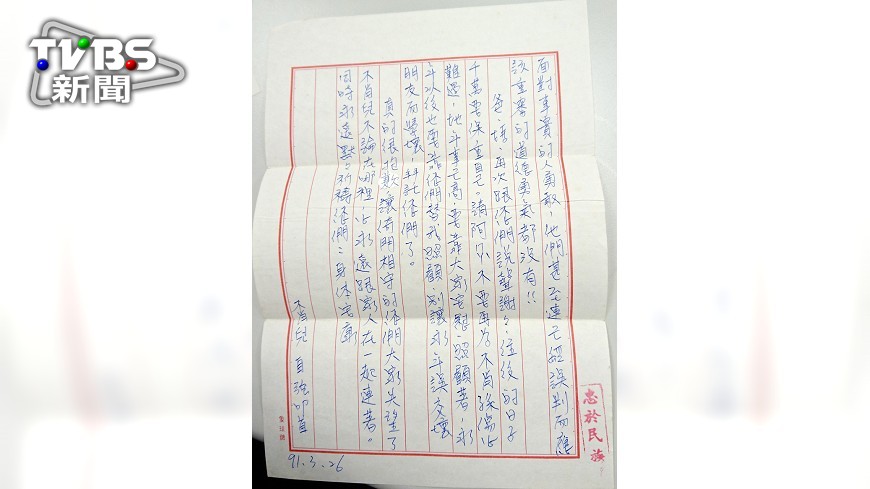 TVBS
新聞
面對事實的人勇敢,他們甚至連已經誤判而應
該重審的道德勇氣都沒有!!
爸、媽,再次跟你們說聲謝謝,往後的日子
千萬要保重自己。請阿公不要再為不肖孫傷心
難過,他年事已高,要靠大家安慰、照顧著,永
年以後也要靠你們替我照顧,別讓永年誤交壞
朋友而學壞,拜託你們了。
真的很抱歉,讓倚門相守的你們大家失望了
不肖兒不論在哪裡,心永遠跟家人在一起連著。
同時永遠默默祈禱你們:身体安康
不肖兒 自強叩首
91.3.26
忠於民族